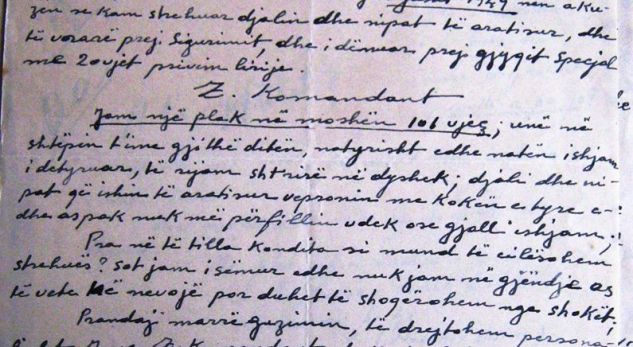 1949 nën aku-
zen se kam strehuar djalin dhe nipat të aratisur, dhe
të vrarë prej Sigurimit, dhe i dënuar prej gjyqit Special
me 20 vjet privim lirije.
Z. Komandant
Jam një plak në moshën 101 vjeç; unë në
shtëpin t'ime gjithë ditën, natyrisht edhe natën ishjam
i detyruar, të rijam shtrirë në dyshek; djali dhe ni-
pat që ishin të aratisur vepronin me kokën e tyre e
dhe aspak nuk më përfillin vdek ose gjall ishjam;
Pra në të tilla kondita si mund të cilësohem
strehuës? Sot jam i sëmur edhe nuk jam në gjëndje as
të vete në nevojë por duhet të shoqërohem nga shokët;
Prandaj marrë guzimin, të drejtohem persona-